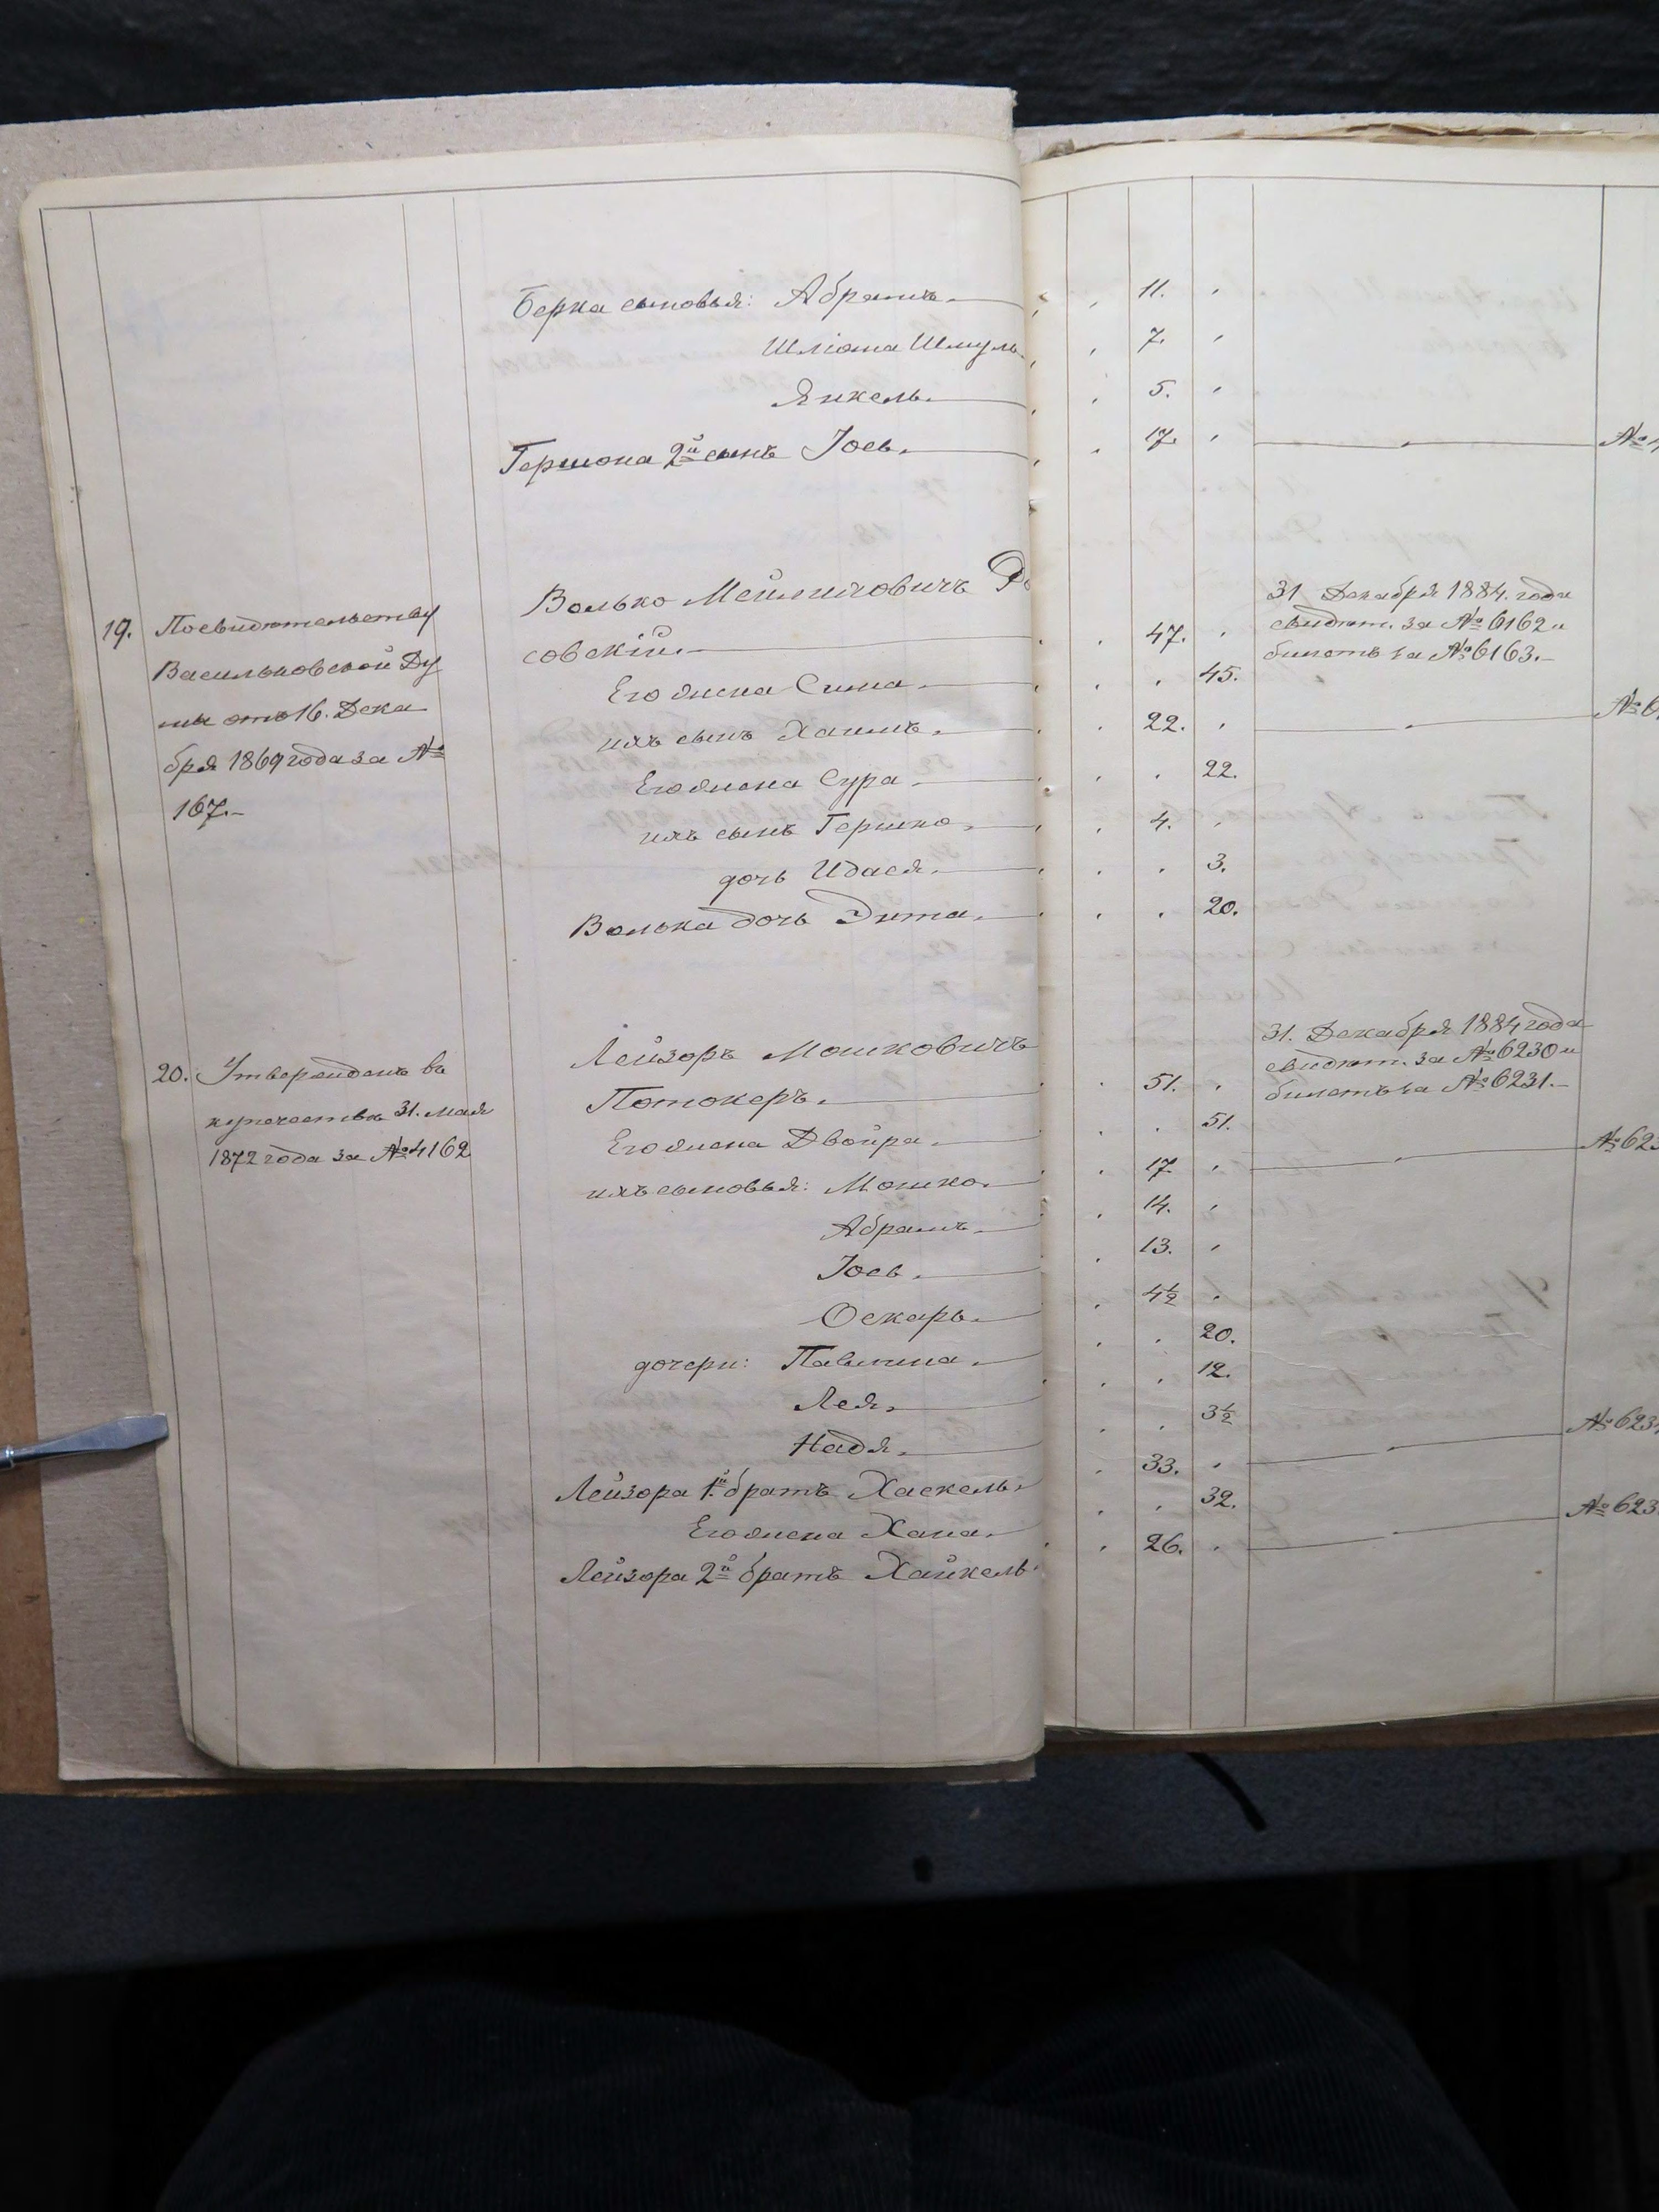 Берка сыновья: Абрамъ. 11.
Шліома Шмуль 7.
Янкель. 5.
Гершона 2й сынъ Іось. 17. №
Волько Мейлиховичъ
31 Декабря 1884. года
19. По свидѣтельству
совскій. 47. свидѣт. за № 6162 и
билетъ за № 6163.
Васильковской Ду
Его жена Сима. 45.
мы отъ 16. Дека
ихъ сынъ Хаимъ. 22. №
бря 1869 года за №
Его жена Сура 22.
167.
ихъ сынъ Гершко. 4.
дочь Идася. 3.
Волька дочь Энта. 20.
Лейзоръ Мошковичъ
31. Декабря 1884 года
20. Утвержденъ въ
свидѣт. за № 6230 и
Потокеръ. 51. билетъ за № 6231.
купечествѣ 31. мая
Его жена Двойра. 51.
1872 года за № 4162
ихъ сыновья: Мошко. 17 № 623
Абрамъ. 14.
Іось. 13.
Оскаръ. 4½
дочери: Павлина. 20.
Лея. 12.
Надя. 3½
Лейзора 1й братъ Хаскель. 33. № 623
Его жена Хана. 32.
Лейзора 2й братъ Хайкель 26. № 623